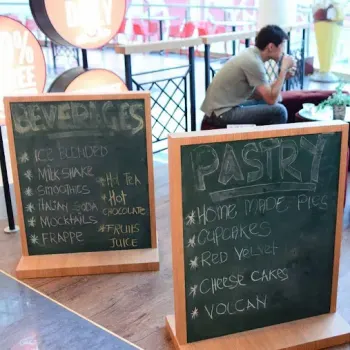 BEVERAGES
* ICE BLENDED
* MILKSHAKE
* SMOOTHIES
* ITALIAN SODA
* MOCKTAILS
* FRAPPE
* HOT TEA
* HOT
CHOCOLATE
* FRUITS
JUICE
PASTRY
* HOME MADE PIES
* CUPCAKES
* RED VELVET
* CHEESE CAKES
* VOLCAN